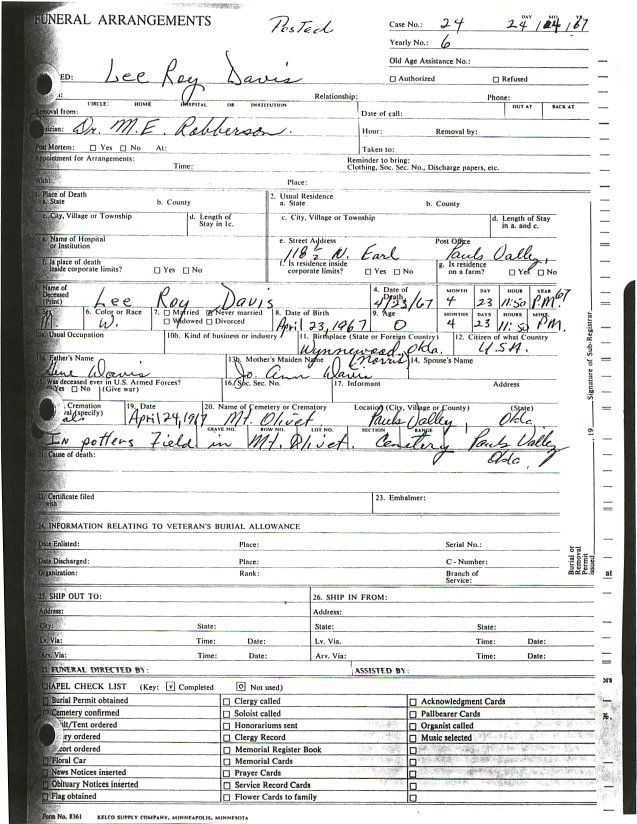 FUNERAL ARRANGEMENTS
Posted
Case No.: 24
DAY MO. YR.
24 / 04 / 67
Yearly No.: 6
Old Age Assistance No.:
Authorized Refused
ED: Lee Roy Davis
Relationship: Phone:
CIRCLE: HOME HOSPITAL OR INSTITUTION
OUT AT BACK AT
oval from:
Date of call:
ician: Dr. M.E. Robberson.
Hour: Removal by:
Post Mortem: Yes No At:
Taken to:
Appointment for Arrangements:
Time:
Reminder to bring:
Clothing, Soc. Sec. No., Discharge papers, etc.
With: Place:
1. Place of Death
a. State b. County
2. Usual Residence
a. State b. County
c. City, Village or Township d. Length of Stay in 1c.
c. City, Village or Township d. Length of Stay in a. and c.
e. Name of Hospital or Institution
e. Street Address Post Office
118 1/2 N. Earl Pauls Valley,
f. Is place of death inside corporate limits? Yes No
f. Is residence inside corporate limits? Yes No
g. Is residence on a farm? Yes No
3. Name of Deceased (Print) Lee Roy Davis
4. Date of Death 4/23/67
MONTH DAY HOUR YEAR
4 23 11:50 P.M. 67
M. 6. Color or Race W.
7. Married Never married Widowed Divorced
8. Date of Birth April 23, 1967
9. Age 0
MONTHS DAYS HOURS MINS.
4 23 11:50 P.M.
10a. Usual Occupation 10b. Kind of business or industry
11. Birthplace (State or Foreign Country) Wynnewood, Okla.
12. Citizen of what Country U.S.A.
13a. Father's Name Gene Davis
13b. Mother's Maiden Name (Morris) Jo Ann Davis
14. Spouse's Name
15. Was deceased ever in U.S. Armed Forces?
Yes No (Give war)
16. Soc. Sec. No. 17. Informant Address
Cremation
val (specify)
19. Date April 24, 1967
20. Name of Cemetery or Crematory Mt. Olivet
Location (City, Village or County) (State)
Pauls Valley, Okla.
GRAVE NO. ROW NO. LOT NO. SECTION RANGE
In potters Field in Mt. Olivet. Cemetery Pauls Valley
Okla.
21. Cause of death:
22. Certificate filed with
23. Embalmer:
24. INFORMATION RELATING TO VETERAN'S BURIAL ALLOWANCE
Date Enlisted: Place: Serial No.:
Date Discharged: Place: C - Number:
Organization: Rank: Branch of Service:
25. SHIP OUT TO: 26. SHIP IN FROM:
Address: Address:
City: State: State: State:
Lv. Via: Time: Date: Lv. Via. Time: Date:
Arv. Via: Time: Date: Arv. Via: Time: Date:
27. FUNERAL DIRECTED BY: ASSISTED BY:
CHAPEL CHECK LIST (Key: v Completed O Not used)
Burial Permit obtained Clergy called Acknowledgment Cards
Cemetery confirmed Soloist called Pallbearer Cards
ult/Tent ordered Honorariums sent Organist called
ery ordered Clergy Record Music selected
cort ordered Memorial Register Book
Floral Car Memorial Cards
News Notices inserted Prayer Cards
Obituary Notices inserted Service Record Cards
Flag obtained Flower Cards to family
Form No. 8361 KELCO SUPPLY COMPANY, MINNEAPOLIS, MINNESOTA
Signature of Sub-Registrar
19
Burial or Removal Permit issued
at